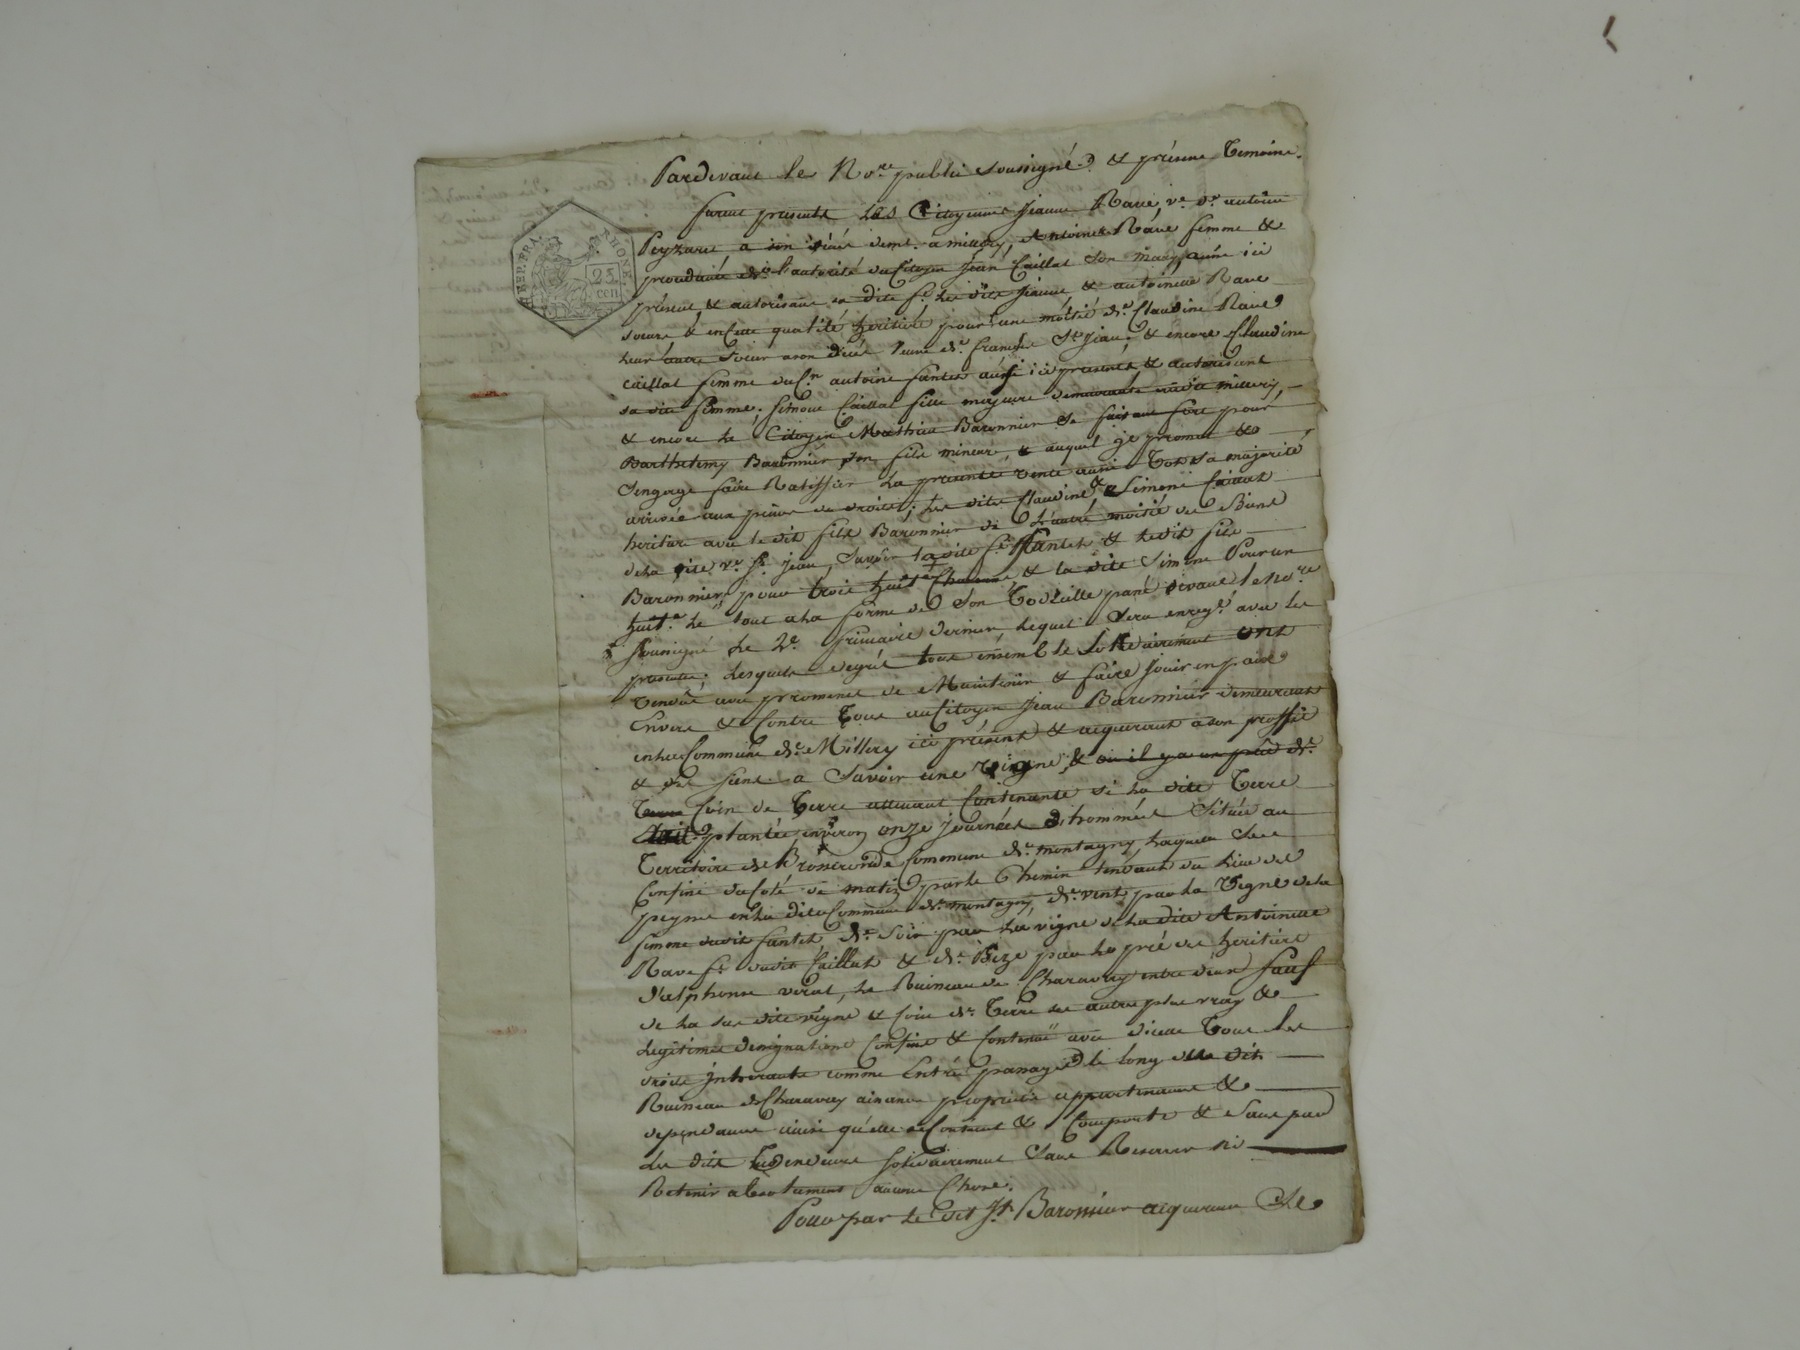 Pardevant les No.re public soussigné.é & présens Temoins.
furent presents les Citoyennes Jeanne Rave, v.e d.e antoine
a son décés demt. a millery, Antoinette Rave femme &
de l'autorité du Citoyen Jean Caillat son mary aussi ici
présent & autorisant sa dite f.e les dites Jeanne & antoinette Rave
soeurs & en cette qualité heritiere pour une moitié de Claudine Rave
leur autre soeur a son décés veuve de françois St Jean, & encore Claudine
Caillat femme du C.n antoine fantet aussi ici présent & autorisant
sa dite femme, Simone Caillat fille majeure demeurante à millery,
& encore le Citoyen Mathieu Baronnier se faisant fort pour
Barthelemy Baronnier son fils mineur, & auquel il promet &
s'engage faire Ratiffier la presente vente sa majorité
arrivée aux peines de droits; les dites Claudine & Simone Caillat
heritiere avec le dit fils Baronnier de l'autre moitié des Biens
de la dite v.e St Jean, savoir la dite f.e fantet & le dit fils
Baronnier, pour trois huit.e & la dite Simone Pour un
huit.e le tout a la forme de son Codicille passé devant le No.re
soussigné le 2.e frimaire dernier lequel sera enreg.é avec les
presentes; Lesquels de gré tous ensemble solidairement ont
vendu avec promesse de Maintenir & faire Jouir en paix
Envers & Contre Tous au Citoyen Jean Baronnier demeurant
en la Commune de Millery ici présent & acquerant a son proffit
& des siens a savoir une vigne, & où il y a un de
Coin de Terre Contenante si la dite Terre
étoit plantée environ onze journées d'hommées Située au
Territoire de Commune de montagny, laquelle se
Confine du Coté de matin par le Chemin tendant du lieu de
peyme en la dite Commune de montagny, de vent par la vigne de la
femme du dit fantet, de soir par la vigne de la dite Antoinette
Rave f.e du dit Caillat & de Bize par le pré des heritiers
d'alphonse verat, le Ruisseau de Charavay entre deux, sauf
de la sus dite vigne & Coin de Terre ses autres plus vray &
Legitimes designations Confins & Contenue avec d'icelle Tous les
droits inherants comme Entrée passage le long du dit
Ruisseau de Charavay aisances proprietés appartenances &
dependances ainsi qu'elle se Contient & Comporte & sans par
les dits Vendeurs solidairement sans Reserver ni
Retenir absolument aucune Chose.
Pour par le dit J.n Baronnier acquereur de
REP. FRA. RHONE.
25
cen